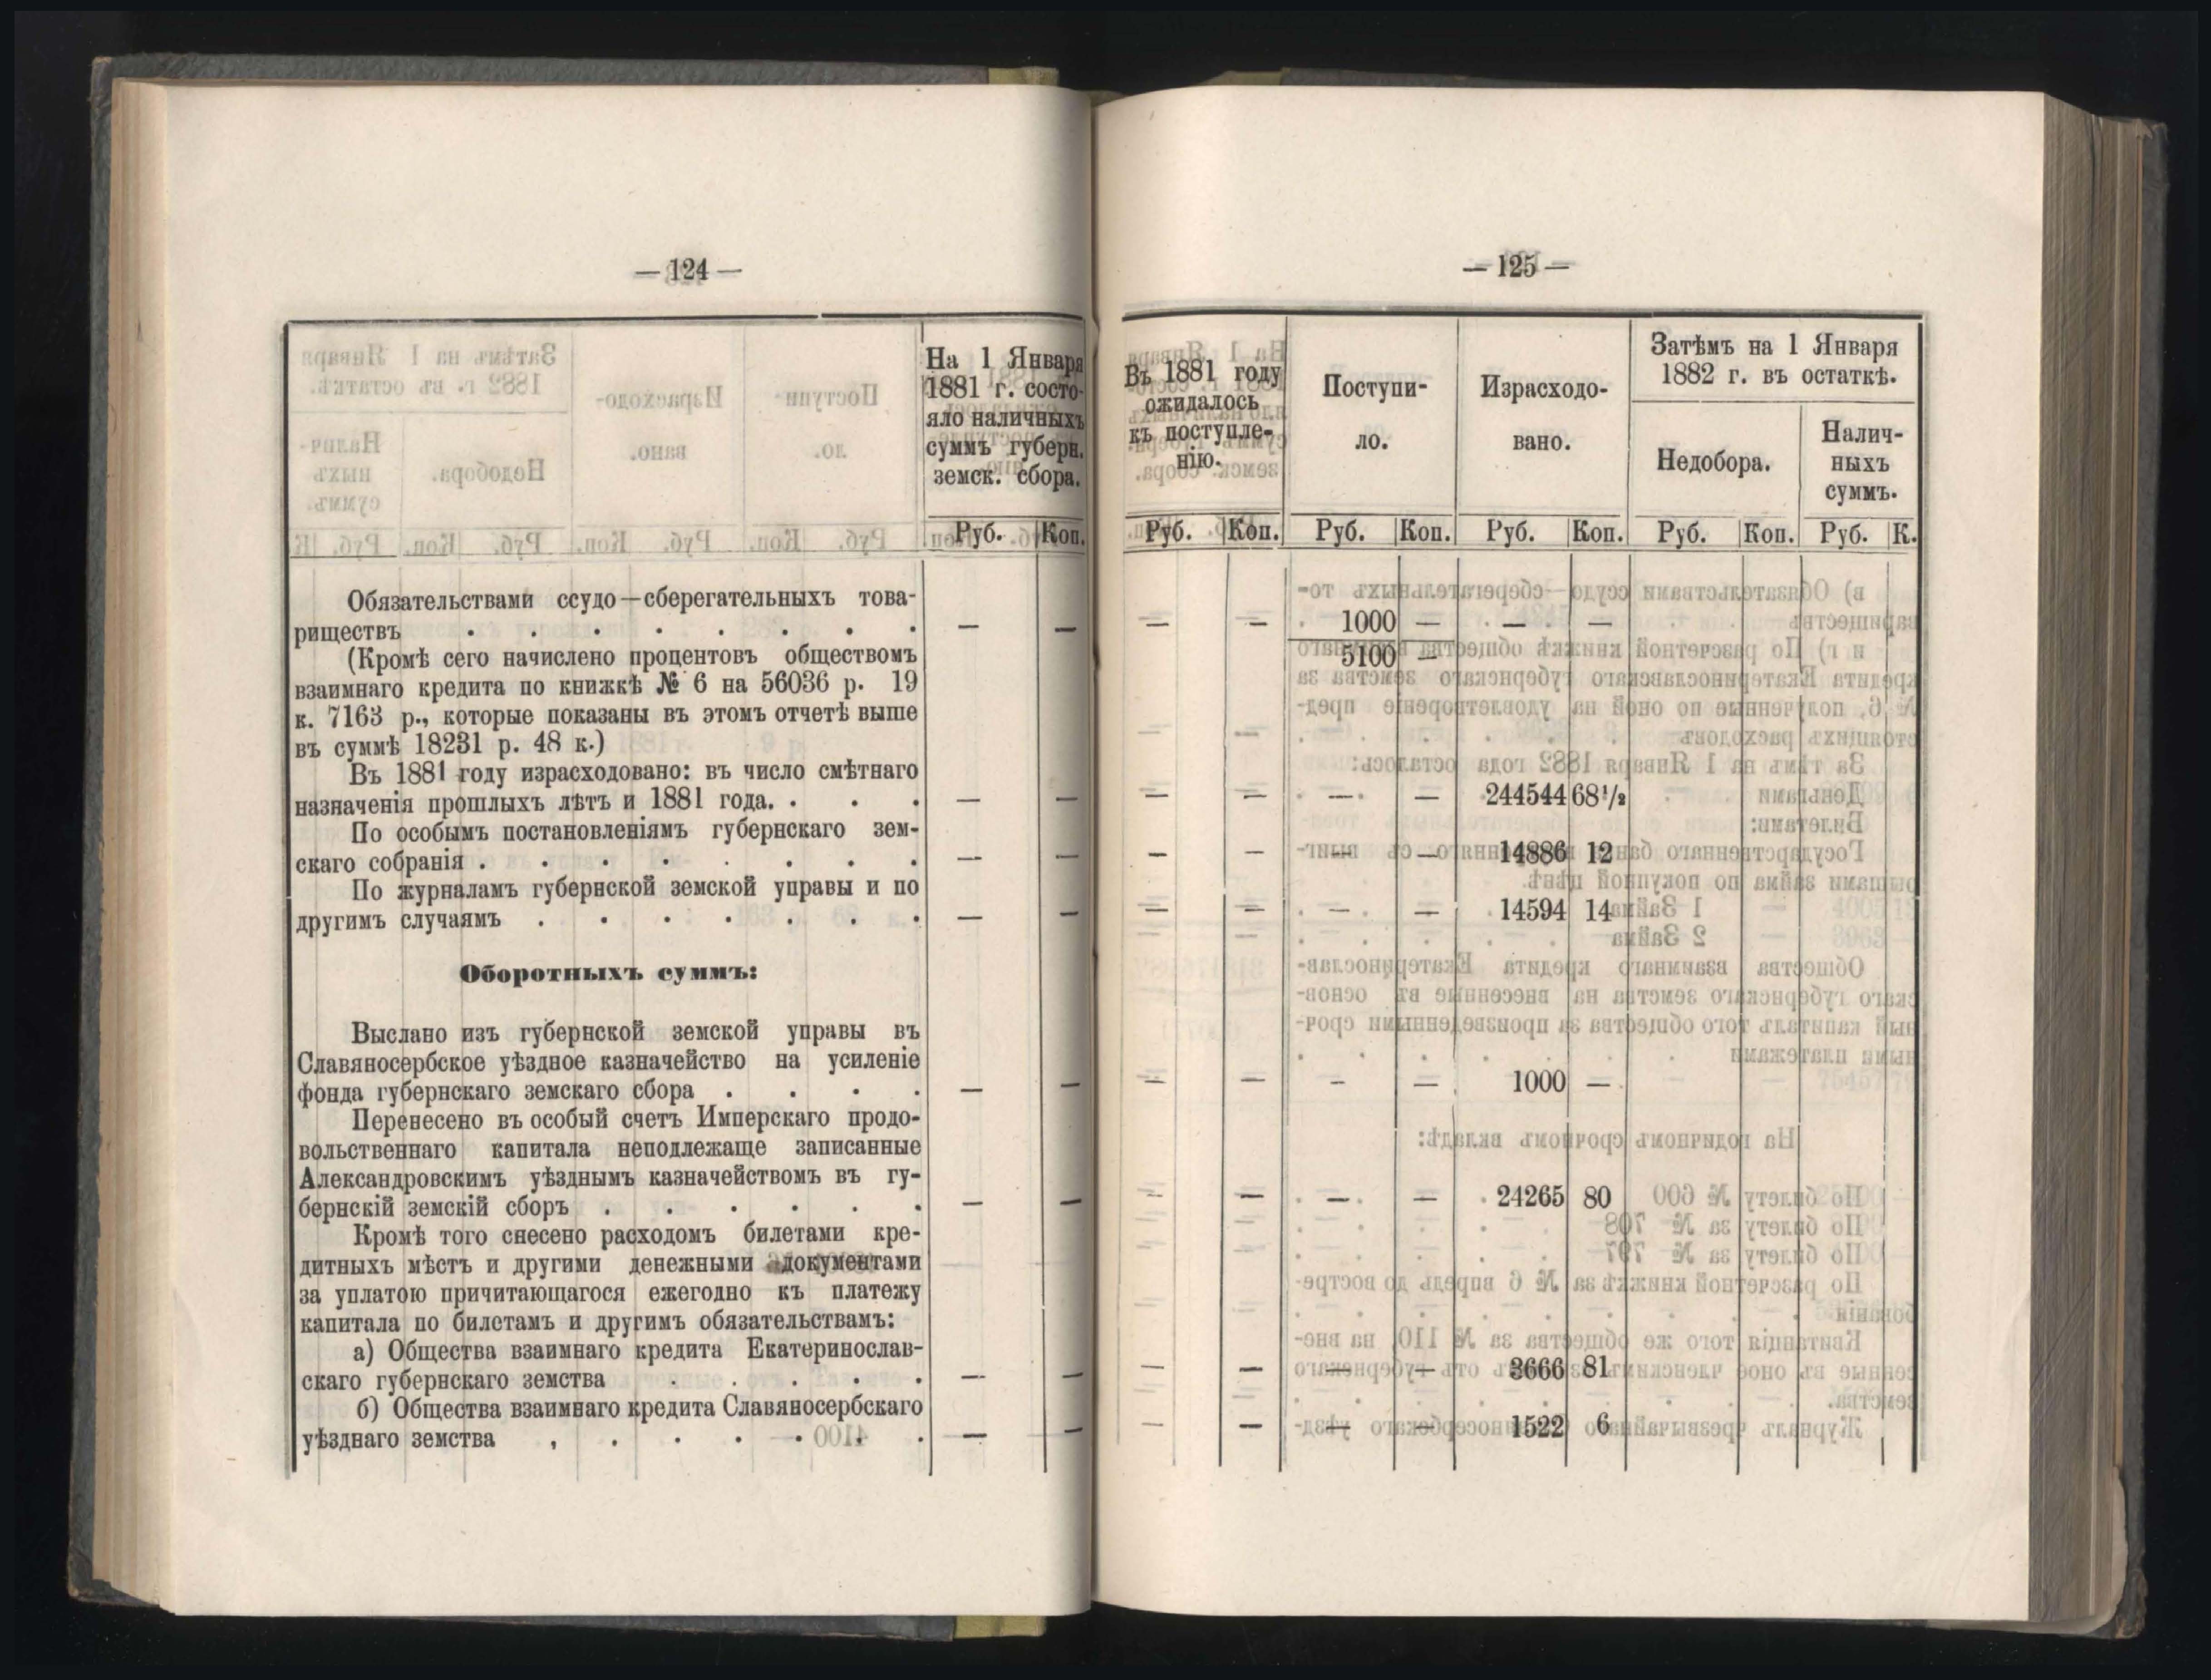 — 124 —
На 1 Января
1881 г. состо-
яло наличныхъ
суммъ губерн.
земск. сбора.
Руб. Коп.
Обязательствами ссудо—сберегательныхъ това-
риществъ . . . . . . . . — —
(Кромѣ сего начислено процентовъ обществомъ
взаимнаго кредита по книжкѣ № 6 на 56036 р. 19
к. 7163 р., которые показаны въ этомъ отчетѣ выше
въ суммѣ 18231 р. 48 к.)
Въ 1881 году израсходовано: въ число смѣтнаго
назначенія прошлыхъ лѣтъ и 1881 года. . . . — —
По особымъ постановленіямъ губернскаго зем-
скаго собранія . . . . . . . . — —
По журналамъ губернской земской управы и по
другимъ случаямъ . . . . . . . — —
Оборотныхъ суммъ:
Выслано изъ губернской земской управы въ
Славяносербское уѣздное казначейство на усиленіе
фонда губернскаго земскаго сбора . . . . — —
Перенесено въ особый счетъ Имперскаго продо-
вольственнаго капитала неподлежаще записанные
Александровскимъ уѣзднымъ казначействомъ въ гу-
бернскій земскій сборъ . . . . . . — —
Кромѣ того снесено расходомъ билетами кре-
дитныхъ мѣстъ и другими денежными документами
за уплатою причитающагося ежегодно къ платежу
капитала по билетамъ и другимъ обязательствамъ:
а) Общества взаимнаго кредита Екатеринослав-
скаго губернскаго земства . . . . . — —
б) Общества взаимнаго кредита Славяносербскаго
уѣзднаго земства , . . . . . . — —
— 125 —
Въ 1881 году
ожидалось
къ поступле-
нію.
Поступи-
ло.
Израсходо-
вано.
Затѣмъ на 1 Января
1882 г. въ остаткѣ.
Недобора.
Налич-
ныхъ
суммъ.
Руб. Коп. Руб. Коп. Руб. Коп. Руб. Коп. Руб. К.
— — 1000 — — —
5100 —
— — — — 244544 68½
— — — — 14886 12
— — — — 14594 14
— — — — 1000 —
— — — — 24265 80
— — — — 3666 81
— — — — 1522 6